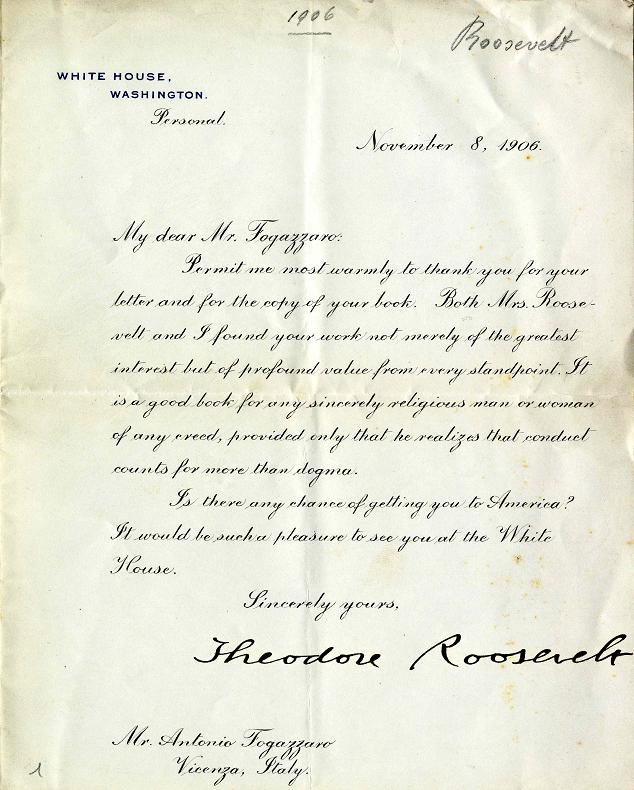 1906
Roosevelt
WHITE HOUSE,
WASHINGTON.
Personal.
November 8, 1906.
My dear Mr. Fogazzaro:
Permit me most warmly to thank you for your
letter and for the copy of your book. Both Mrs. Roose-
velt and I found your work not merely of the greatest
interest but of profound value from every standpoint. It
is a good book for any sincerely religious man or woman
of any creed, provided only that he realizes that conduct
counts for more than dogma.
Is there any chance of getting you to America?
It would be such a pleasure to see you at the White
House.
Sincerely yours,
Theodore Roosevelt
Mr. Antonio Fogazzaro
Vicenza, Italy.
1